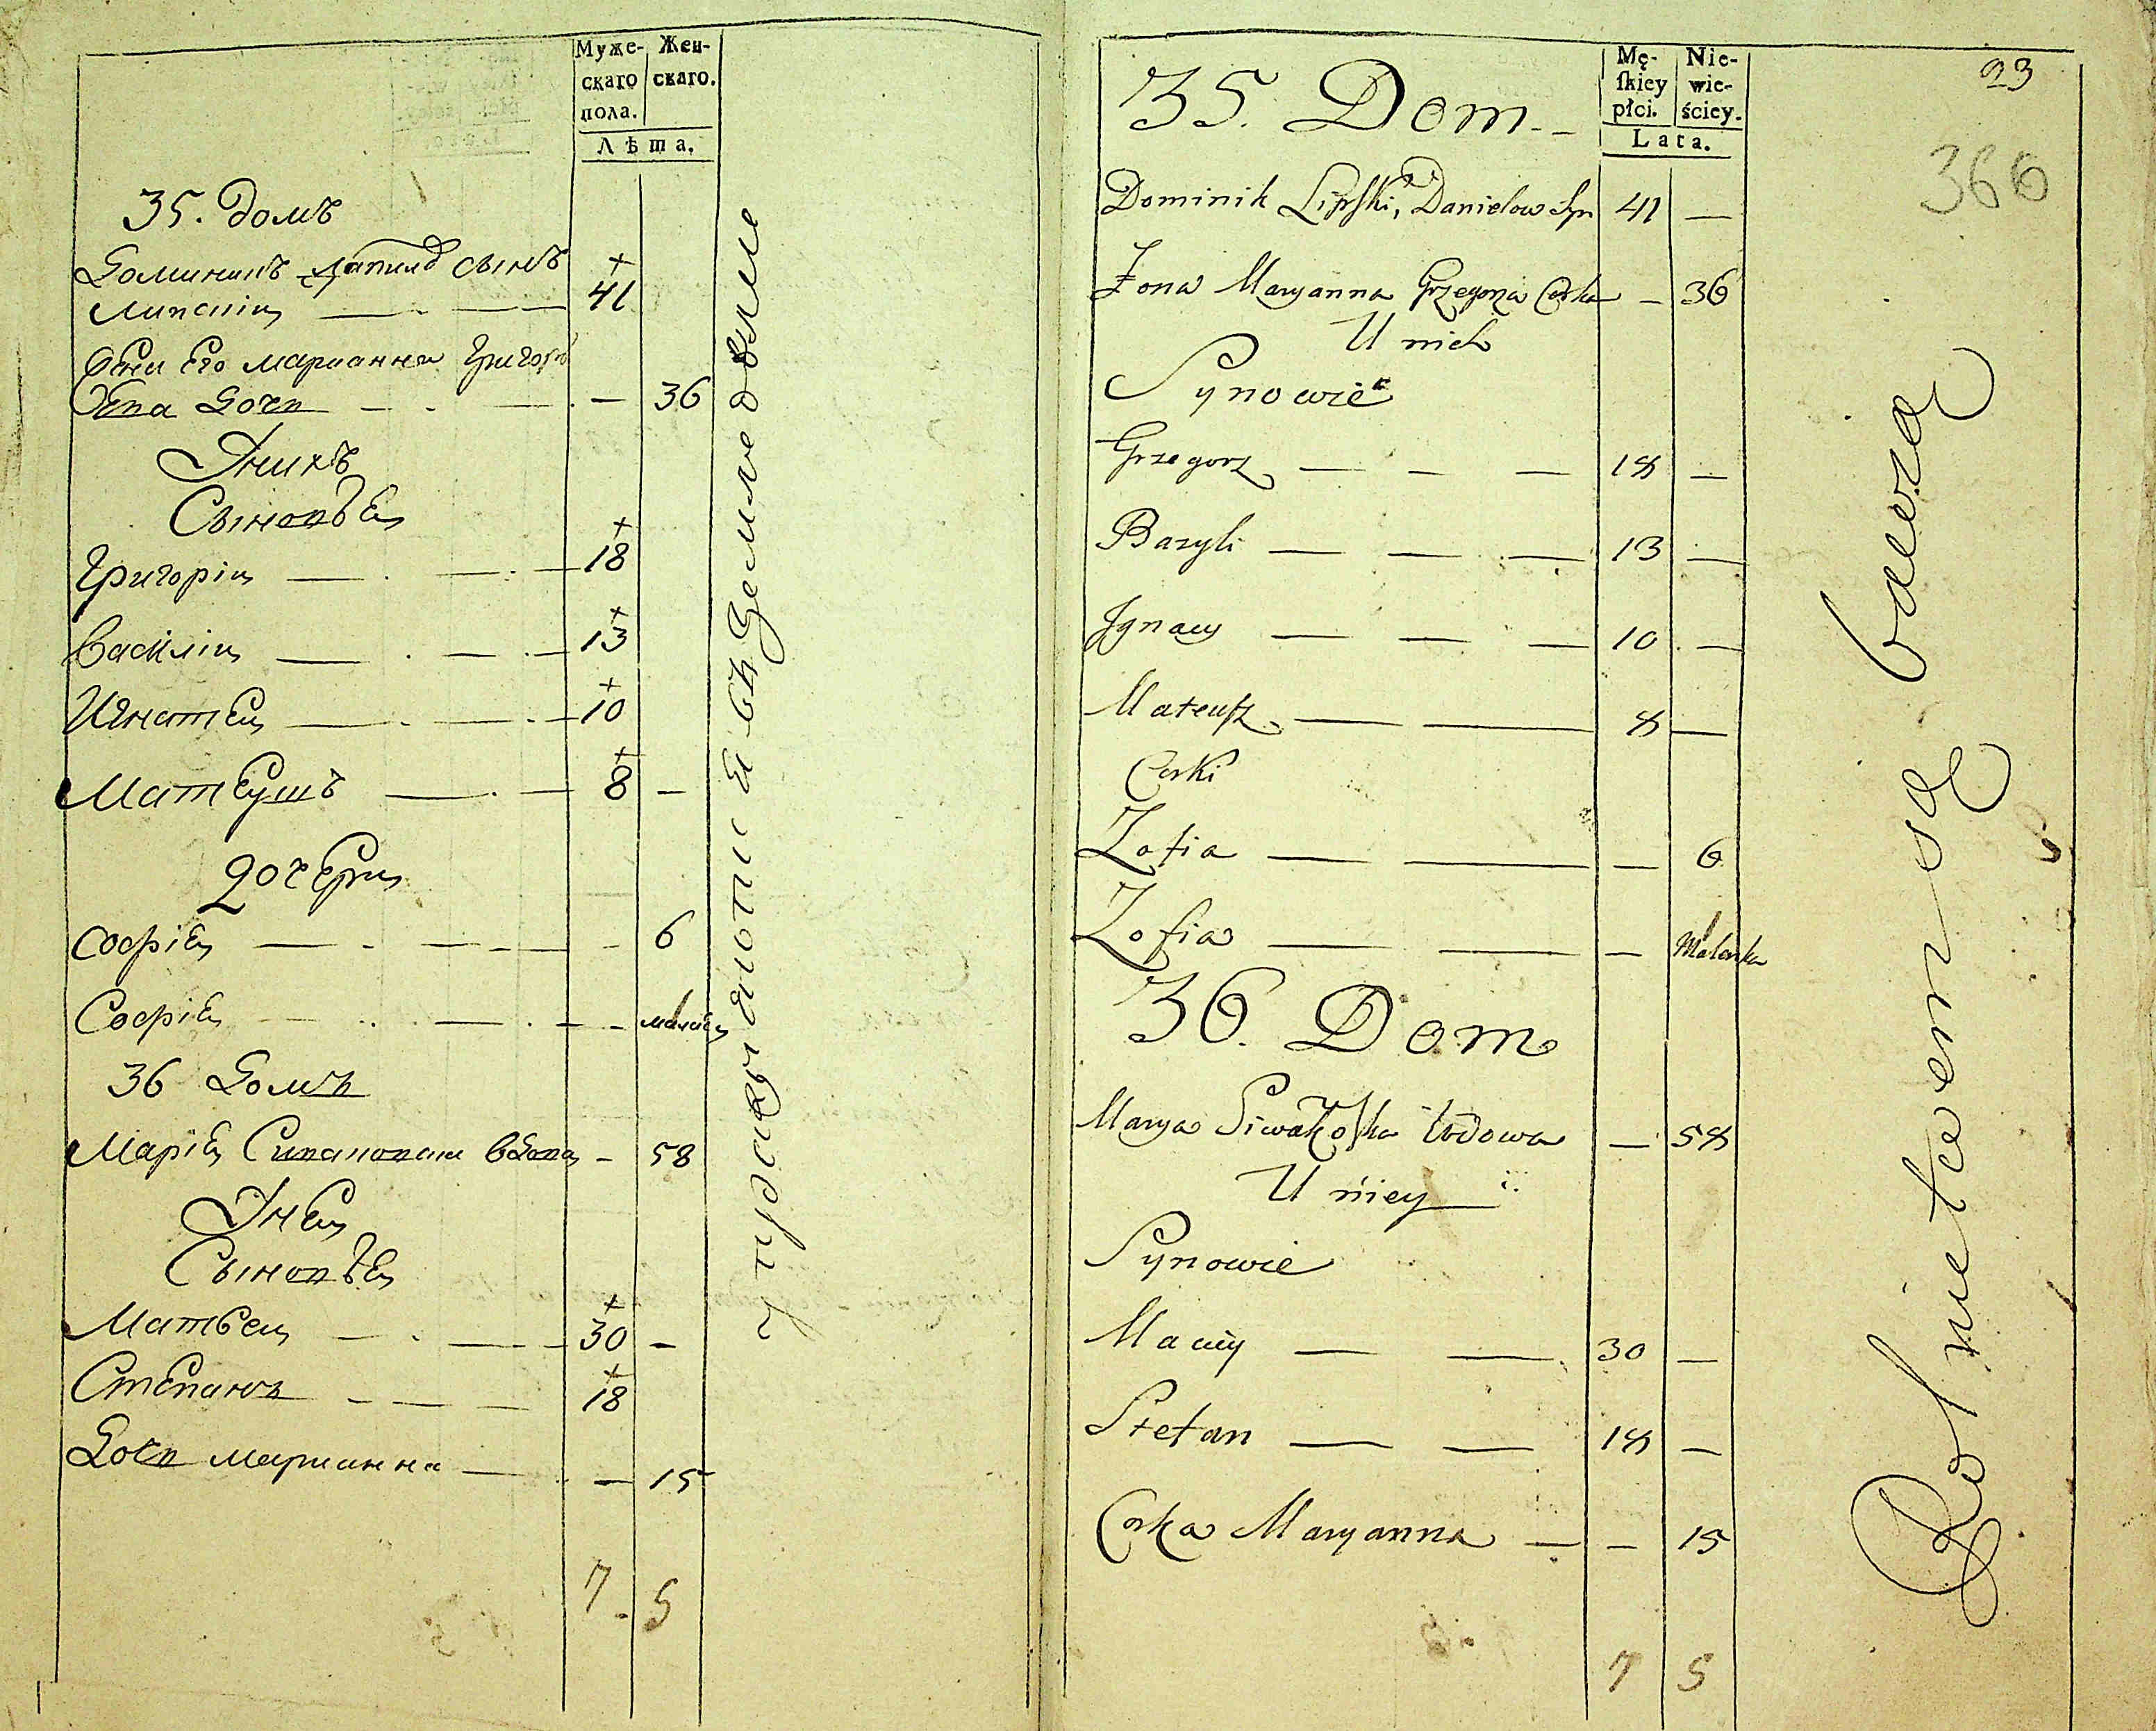 Муже- Жен-
скаго скаго.
пола.
Лѣта.
35. домъ
Доминикъ Данилов сынъ
Липскій 41
Жена Его марианна Григорь
Ева дочь — 36
У нихъ
Сыновѣя
Григорій 18
Василій 13
Игнатей 10
Матеушъ 8 —
Дочери
Софія 6
Софія малая
36 Домъ
Марія Сиваковская вдова — 58
У нея
Сыновѣя
Матвей 30 —
Степанъ 18
Дочь марианна — 15
7. 5
23
366
Mę- Nie-
ſkiey wie-
płci. ściey.
Lata.
35. Dom
Dominik Lipſki, Danielow Syn 41 —
Żona Maryanna Grzegorza Corka — 36
U nich
Synowie
Grzegorz 18 —
Bazyli 13 —
Jgnacy 10 —
Mateuſz 8 —
Corki
Zofia — 6
Zofia — Malenka
36. Dom
Marya Siwakoſka Wdowa — 58
U niey
Synowie
Maciy 30 —
Stefan 18 —
Corka Maryanna — 15
7 5
Rolnictwem się bawią